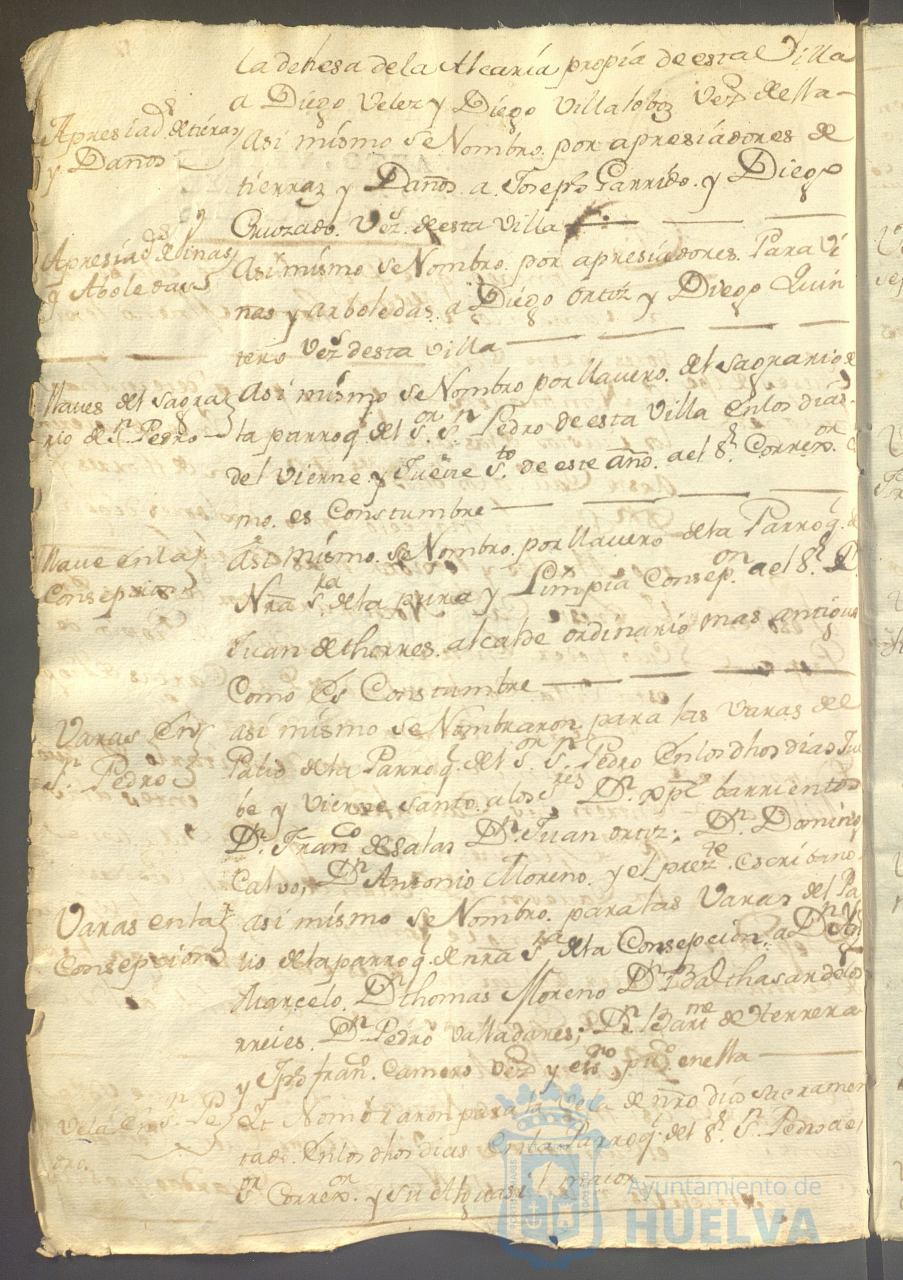 la dehesa de la Alcaria propia de esta Villa
a Diego Velez y Diego Villalobos Vez.s de ella
Apresiad.s de tierras
y Daños
Asi mismo se Nombro. por apresiadores de
tierras y Daños. a Joseph Garrido. y Diego
Cruzado. Vez.s de esta Villa
Apresiad.s de Vinas
y Aboledas
Asi mismo se Nombro. por apresiadores. Para Vi
nas y arboledas. a Diego Ortiz y Diego Quin
tero Vez.s desta Villa
llaves del Sagra
rio de S.n Pedro
Asi mismo se Nombro por llavero. del Sagrario de
la parroq. del S.or S.n Pedro de esta Villa En los dias
del Vierne. y Jueve S.to de este año. a el S.r Correx.or
mo. es Constumbre
llave en la
Consepcion
Asi mismo. se Nombro. por llavero de la Parroq.
Nra S.ra de la pura y Limpia Consep.on a el S.r D.
Juan de thorres. alcalde ordinario mas antiguo
Como Es Constumbre
Varas En
S.n Pedro
asi mismo se Nombraron para las Varas del
Palio de la Parroq. del S.or S.n Pedro En los dhos dias Jue
be y Vierne Santo. a los S.res D.n xptl barrientos
D.n Fran.co de Salas D.n Juan ortiz; D.n Domingo
Calvo, D.n Antonio Moreno. y el prez.te Escribano.
Varas en la
Consepcion
asi mismo se Nombro. para las Varas del Pa
lio de la parroq. de nra S.ra de la Consepcion. a D.n
Marcelo, D.n thomas Moreno D.n Balthasar de los
rreies. D.n Pedro Valladares; D.n Bar.me de Herrera
y Jph fran.co Camero Vez.o y es.no pu.co en ella
Vela En S.n Pe
dro.
Nombraron para la Vela de nro dios Sacramen
tado. En los dhos dias en la Parroq. del S.r S.n Pedro a el
S.or Correx.or y su Alguasil maior
Ayuntamiento de
HUELVA